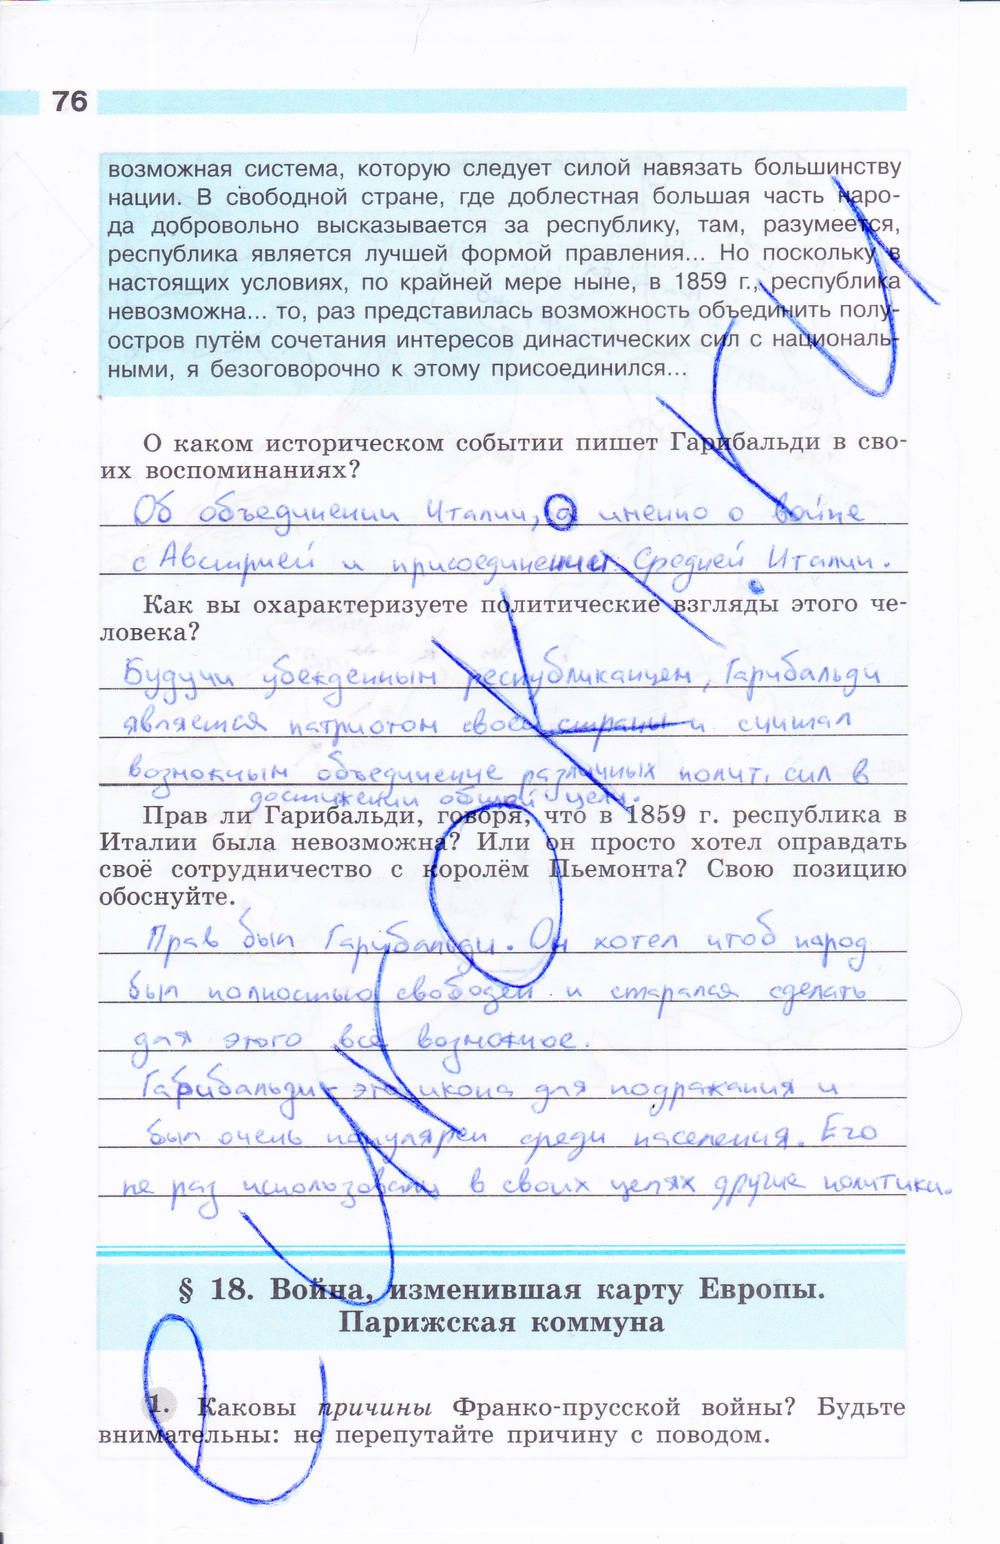 76
возможная система, которую следует силой навязать большинству
нации. В свободной стране, где доблестная большая часть наро-
да добровольно высказывается за республику, там, разумеется,
республика является лучшей формой правления... Но поскольку в
настоящих условиях, по крайней мере ныне, в 1859 г., республика
невозможна... то, раз представилась возможность объединить полу-
остров путём сочетания интересов династических сил с националь-
ными, я безоговорочно к этому присоединился...
О каком историческом событии пишет Гарибальди в сво-
их воспоминаниях?
Об объединении Италии, а именно о войне
с Австрией и присоединении Средней Италии.
Как вы охарактеризуете политические взгляды этого че-
ловека?
Будучи убежденным республиканцем, Гарибальди
является патриотом своей страны и считал
возможным объединение различных полит. сил в
достижении общей цели.
Прав ли Гарибальди, говоря, что в 1859 г. республика в
Италии была невозможна? Или он просто хотел оправдать
своё сотрудничество с королём Пьемонта? Свою позицию
обоснуйте.
Прав был Гарибальди. Он хотел чтоб народ
был полностью свободен и старался сделать
для этого всё возможное.
Гарибальди - это икона для подражания и
был очень популярен среди населения. Его
не раз использовали в своих целях другие политики.
§ 18. Война, изменившая карту Европы.
Парижская коммуна
1. Каковы причины Франко-прусской войны? Будьте
внимательны: не перепутайте причину с поводом.